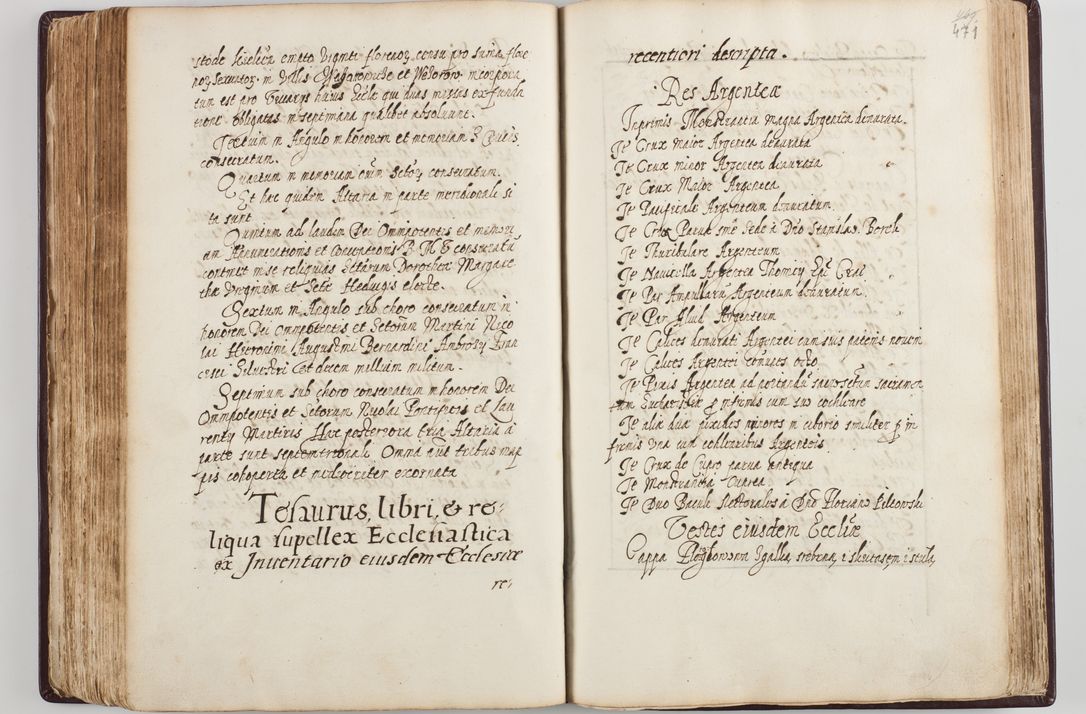 stode Kielicen empto viginti florenoꝝ censu pro suma flore
noꝝ sexcentoꝝ in villis et incorpora
tum est pro Vicarijs huius Eccłæ qui duas missas ex funda
tione obligatas in septimana qualibet absoluunt.
Tertium in Angulo in honorem et memoriam S Crucis
consecratum.
Quartum in memoriam omnium Sctoꝝ consecratum.
Et hac quidem Altaria in parte meridionali si
ta sunt
Quintum ad laudem Dei Omnipotentis et memori
am Annunciationis et Conceptionis B. M. V consecratũ
continet in se reliquias Sctarum Dorotheæ Margare
thæ Virginum et Scte Heduigis electe.
Sextum in Angulo sub choro consecratum in
honorem Dei omnipotentis et Sctorum Martini Nico
lai Hieronimi Augustini Bernardini Ambrosÿ Fran
cisci Siluestri et decem millium militum.
Septimum sub choro consecratum in honorem Dei
Omnipotentis et Sctorum Nicolai Pontificis et Lau
rentÿ Martiris Hæc posteriora tria Altaria à
parte sunt septemtrionali Omnia aũt tribus map
pis cohoperta et mediocriter exornata
Tesaurus, libri, & re-
liqua supellex Ecclesiastica
ex Inuentario eiusdem Ecclesiæ
re-
471
recentiori descripta.
Res Argenteæ
Inprimis Monstrantia magna Argentea deaurata.
Jt Crux maior Argentea deaurata
Jt Crux minor Argentea deaurata
Jt Crux Maior Argentea
Jt Pacificale Argenteum deauratum
Jt Crux Parua sine sede à Dño Stanislao Borch
Jt Thuribulare Argenteum
Jt Nauicella Argentea Thomiczÿ Epĩ Crac
Jt Par Ampullarũ Argenteum deauratum
Jt Par Aliud Argenteum
Jt Calices deaurati Argentei cum suis patenis nouem
Jt Calices Argentei comunes octo
Jt Pixis Argentea ad portandũ sacrosctum sacramen
tum Eucharistiæ ꝓ infirmis cum suo cochleare
Jt aliæ duæ pixides minores in ciborio similiter ꝓ in
firmis una cum cohlearibus Argenteis
Jt Crux de Cupro parua antiqua
Jt Monstrantia Cuprea
Jt Duo Baculi à Dño Floriano
Vestes eiusdem Eccliæ
Cappa z galka srebrna, i